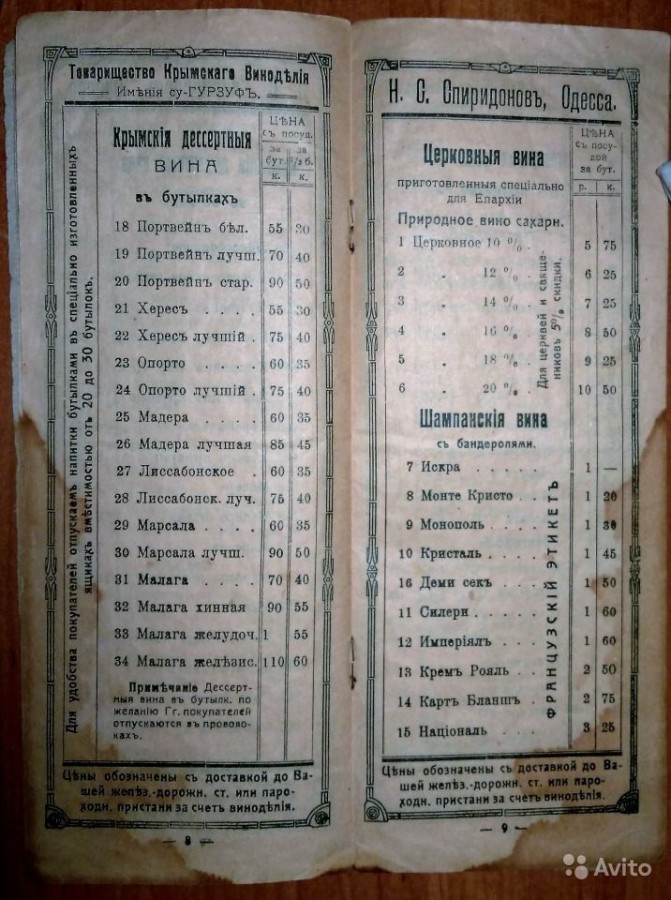 Товарищество Крымскаго Винодѣлія
Имѣнія су-ГУРЗУФЪ.
Для удобства покупателей отпускаемъ напитки бутылками въ спеціально изготовленныхъ
ящикахъ вмѣстимостью отъ 20 до 30 бутылокъ.
Крымскія дессертныя
ВИНА
въ бутылкахъ
ЦѢНА
съ посуд.
за бут. за ½ б.
к. к.
18 Портвейнъ бѣл. 55 30
19 Портвейнъ лучш. 70 40
20 Портвейнъ стар. 90 50
21 Хересъ . . . . 55 30
22 Хересъ лучшій . 75 40
23 Опорто . . . . 60 35
24 Опорто лучшій . 75 40
25 Мадера . . . . 60 35
26 Мадера лучшая 85 45
27 Лиссабонское . 60 35
28 Лиссабонск. луч. 75 40
29 Марсала . . . . 60 35
30 Марсала лучш. 90 50
31 Малага . . . . 70 40
32 Малага хинная 90 55
33 Малага желудоч. 1 55
34 Малага желѣзис. 110 60
Примѣчаніе Дессерт-
ныя вина въ бутылк. по
желанію Гг. покупателей
отпускаются въ провово-
кахъ.
Цѣны обозначены съ доставкой до Ва-
шей желѣз.-дорожн. ст. или паро-
ходн. пристани за счетъ винодѣлія.
— 8 —
Н. С. Спиридоновъ, Одесса.
Церковныя вина
приготовленныя спеціально
для Епархіи
Природное вино сахарн.
ЦѢНА
съ посу-
дой
за бут.
р. к.
1 Церковное 10 %. 5 75
2 „ 12 %. 6 25
3 „ 14 %. 7 25
4 „ 16 %. 8 50
5 „ 18 %. 9 25
6 „ 20 %. 10 50
Для церквей и свяще-
никовъ 5% скидки.
Шампанскія вина
съ бандеролями.
7 Искра . . . . . 1 —
8 Монте Кристо . . 1 20
9 Монополь . . . . 1 30
10 Кристаль . . . . 1 45
16 Деми секъ . . . 1 50
11 Силери . . . . . 1 60
12 Имперіялъ . . . 1 60
13 Кремъ Рояль . . 2 50
14 Картъ Бланшъ . 2 75
15 Національ . . . 3 25
ФРАНЦУЗСКІЙ ЭТИКЕТЪ
Цѣны обозначены съ доставкой до Ва-
шей желѣз.-дорожн. ст. или паро-
ходн. пристани за счетъ винодѣлія.
— 9 —
Avito